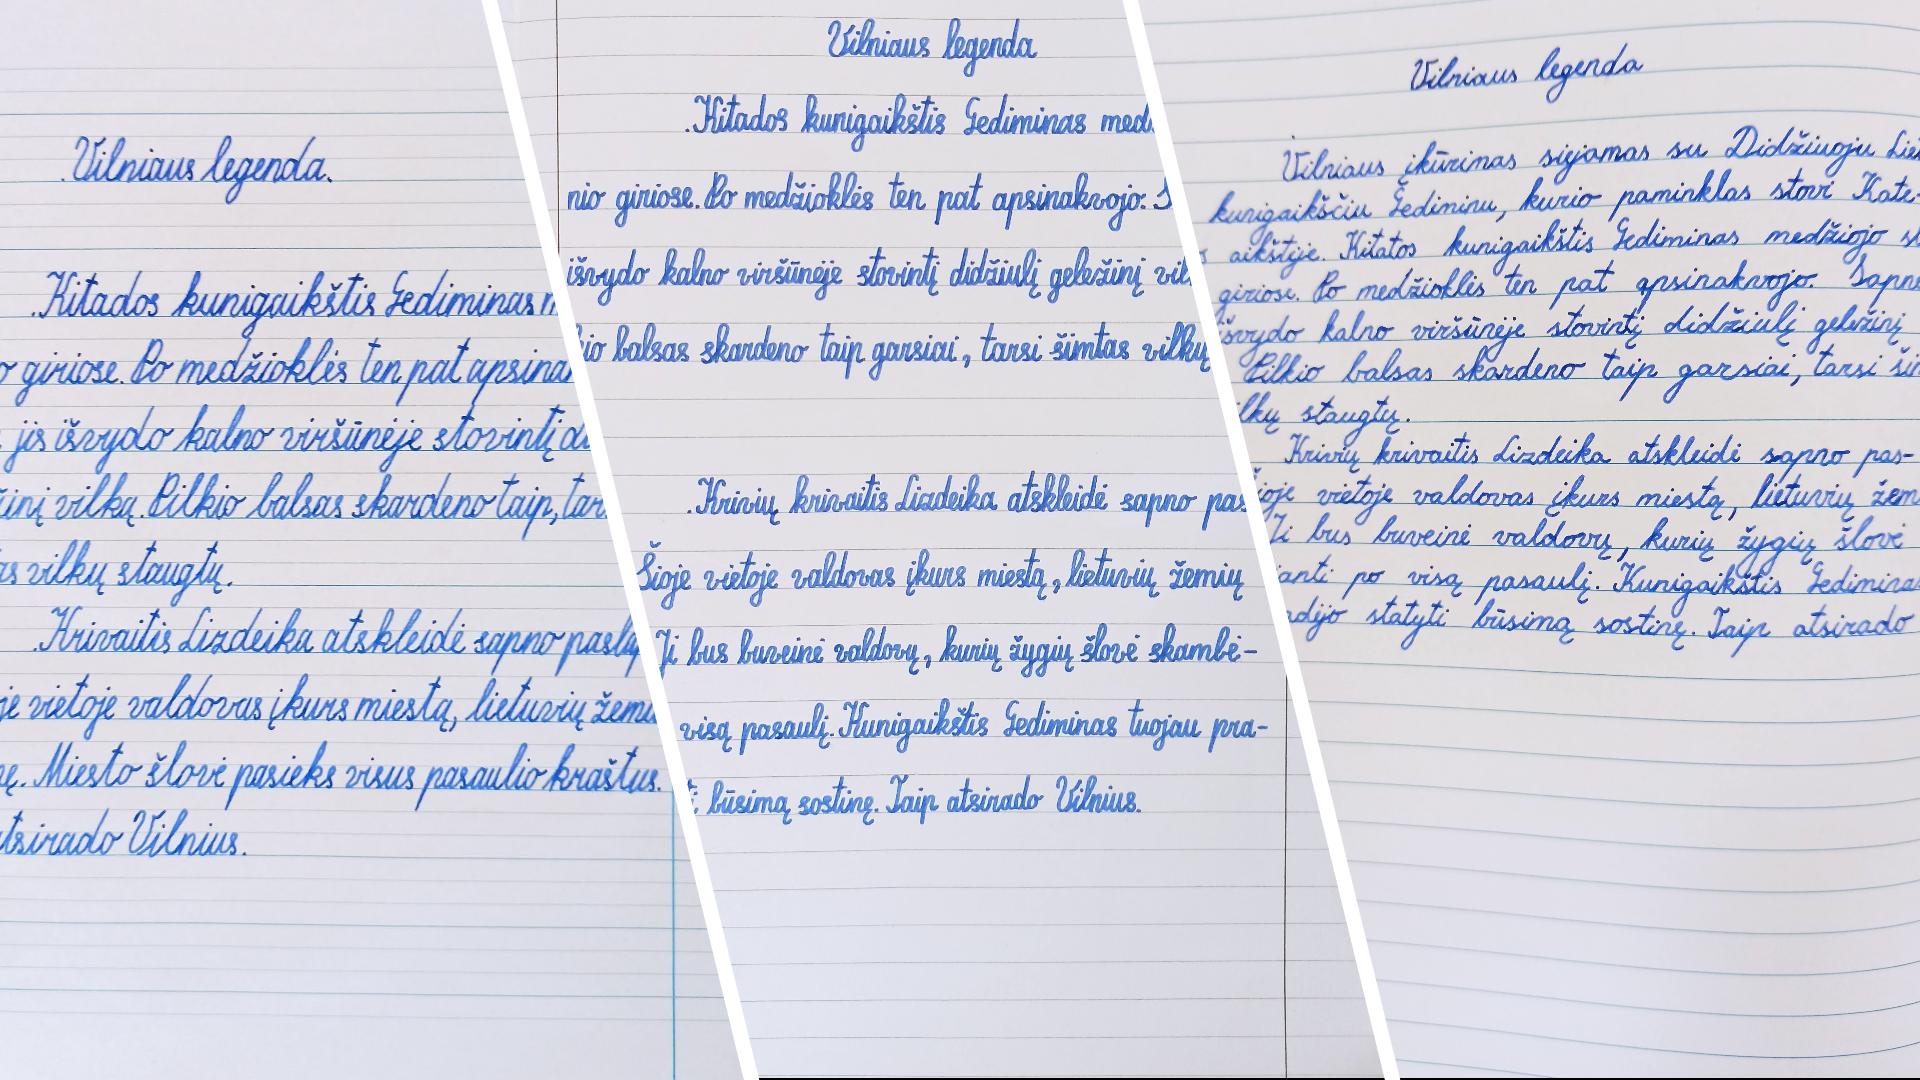 Vilniaus legenda.
Kitados kunigaikštis Gediminas m
o giriose. Po medžioklės ten pat apsinak
jis išvydo kalno viršūnėje stovintį di
žinį vilką. Pilkio balsas skardeno taip, tar
as vilkų staugtų.
Krivaitis Lizdeika atskleidė sapno paslap
je vietoje valdovas įkurs miestą, lietuvių žemi
nę. Miesto šlovė pasieks visus pasaulio kraštus.
atsirado Vilnius.
Vilniaus legenda
Kitados kunigaikštis Gediminas med
nio giriose. Po medžioklės ten pat apsinakvojo. S
išvydo kalno viršūnėje stovintį didžiulį geležinį vil
kio balsas skardeno taip garsiai, tarsi šimtas vilkų
Krivių krivaitis Lizdeika atskleidė sapno pas
Šioje vietoje valdovas įkurs miestą, lietuvių žemių
Ji bus buveinė valdovų, kurių žygių šlovė skambė-
visą pasaulį. Kunigaikštis Gediminas tuojau pra-
ti būsimą sostinę. Taip atsirado Vilnius.
Vilniaus legenda
Vilniaus įkūrimas siejamas su Didžiuoju Lie
kunigaikščiu Gediminu, kurio paminklas stovi Kate-
s aikštėje. Kitatos kunigaikštis Gediminas medžiojo š
giriose. Po medžioklės ten pat apsinakvojo. Sapne
išvydo kalno viršūnėje stovintį didžiulį geležinį
Pilkio balsas skardeno taip garsiai, tarsi šim
ilkų staugtų.
Krivių krivaitis Lizdeika atskleidė sapno pas-
šioje vietoje valdovas įkurs miestą, lietuvių žem
Ji bus buveinė valdovų, kurių žygių šlovė
anti po visą pasaulį. Kunigaikštis Gediminas
adėjo statyti būsimą sostinę. Taip atsirado